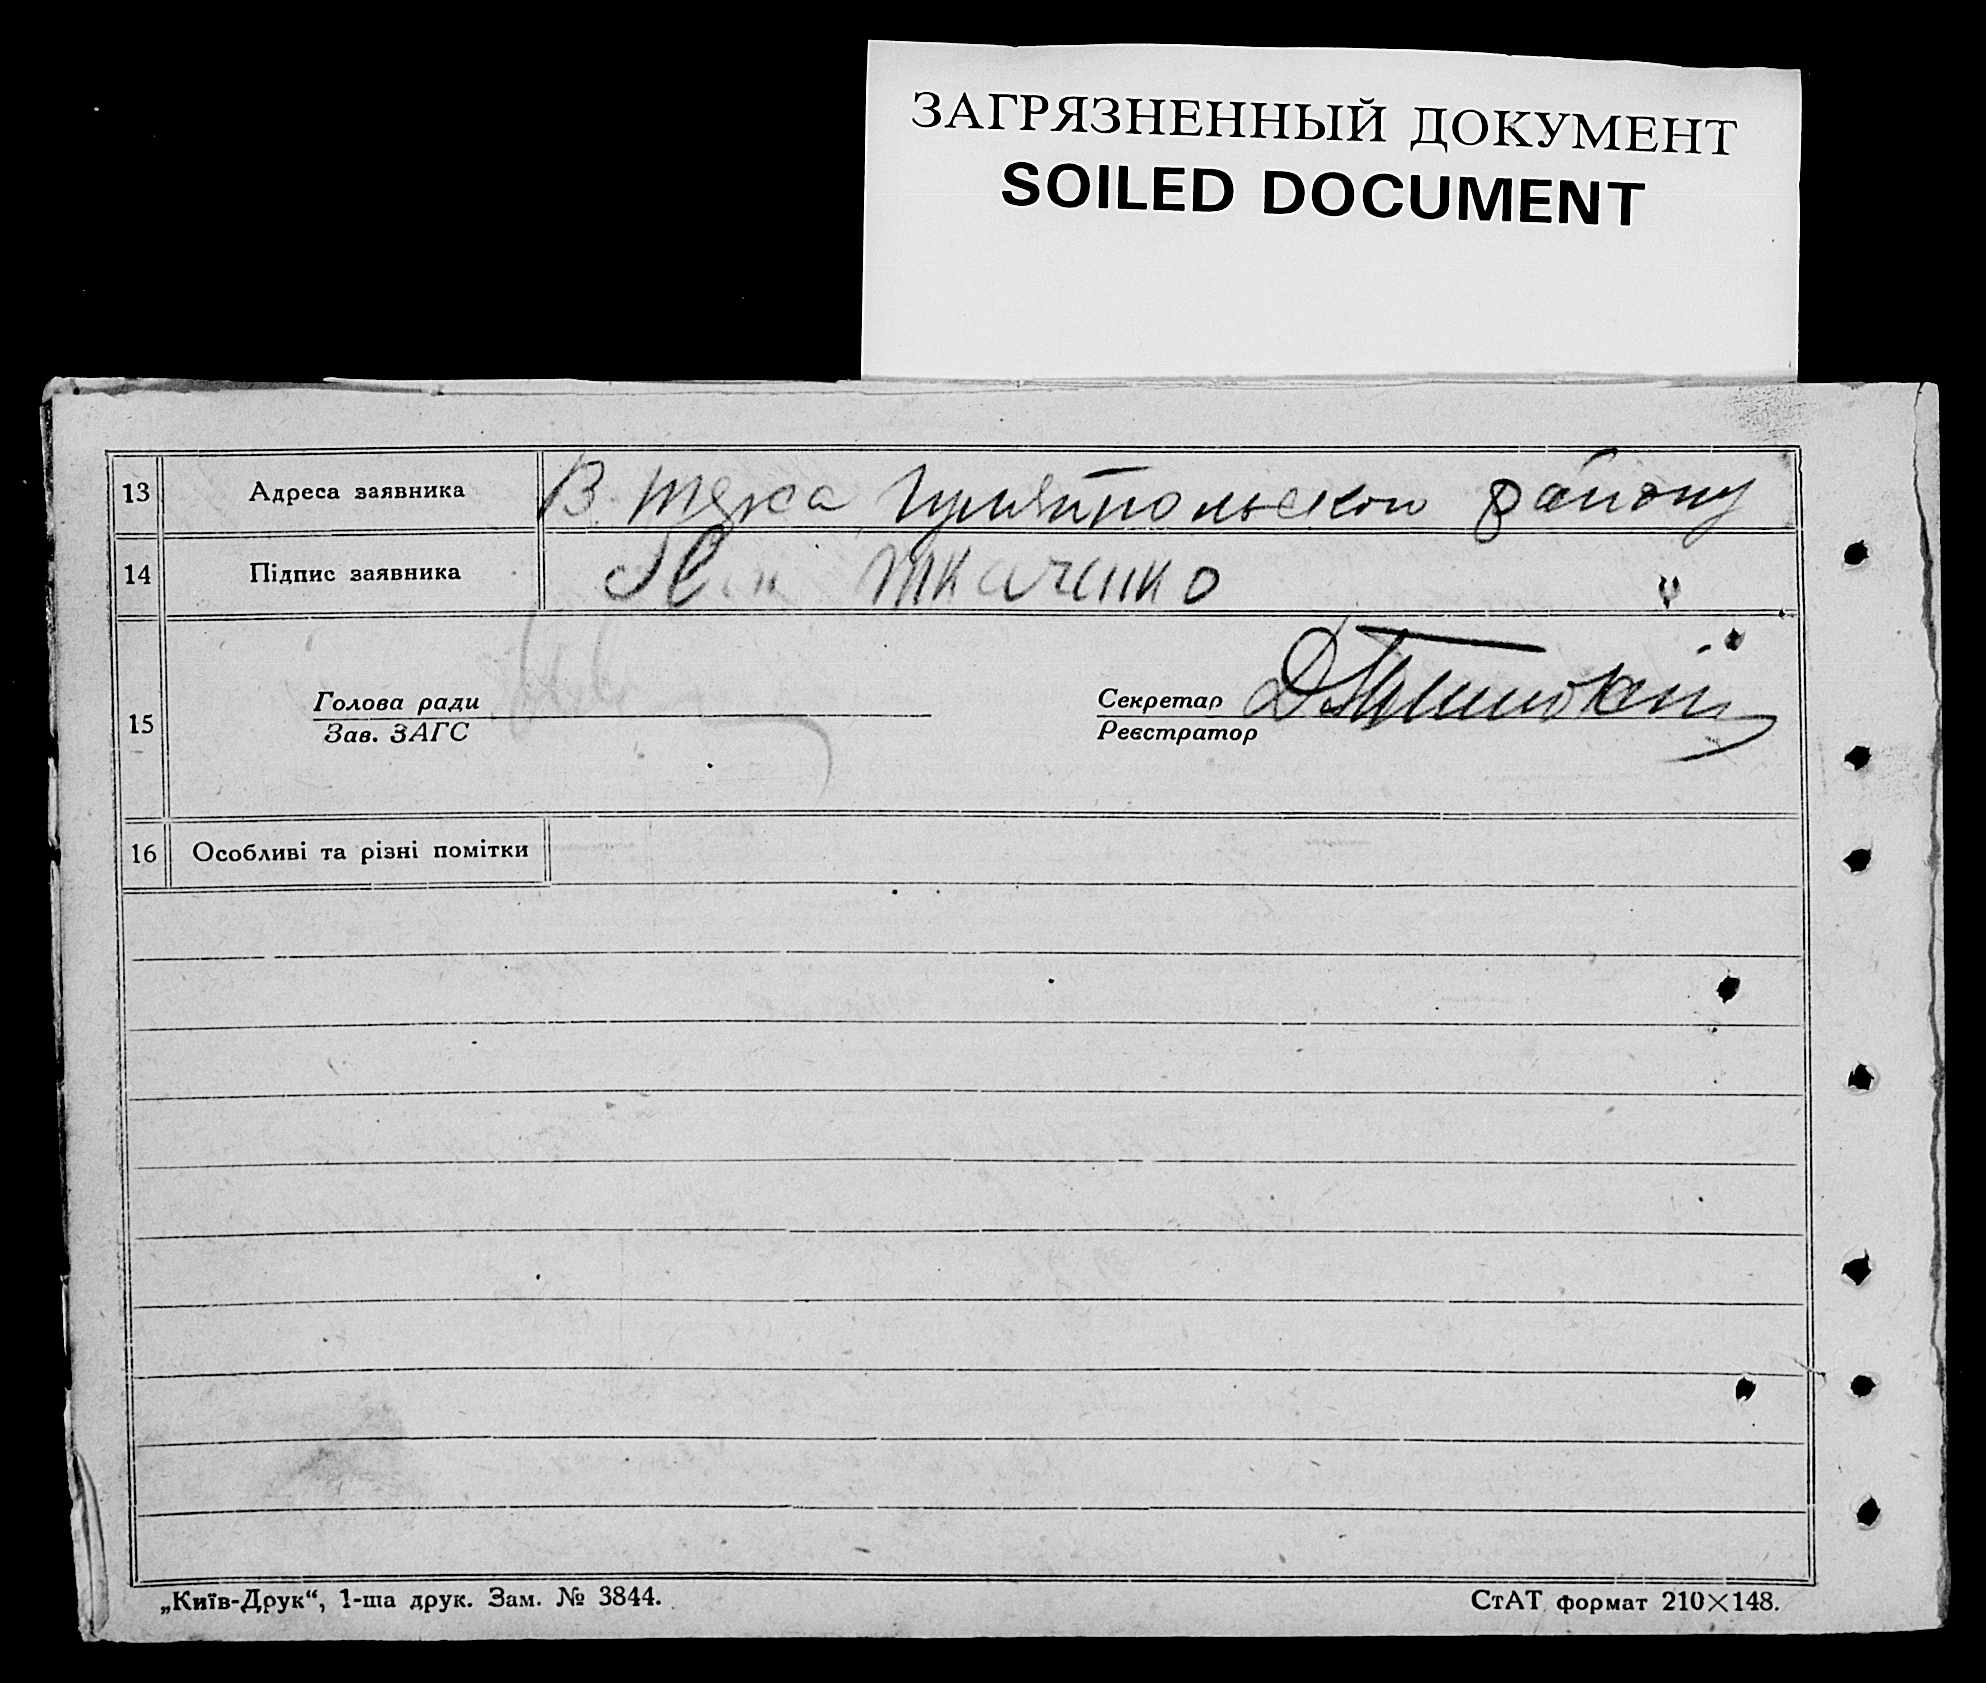 ЗАГРЯЗНЕННЫЙ ДОКУМЕНТ
SOILED DOCUMENT
13 Адреса заявника В. Терса Гуляйпольского району
14 Підпис заявника Ткаченко
15
Голова ради
Зав. ЗАГС
Секретар
Реєстратор
16 Особливі та різні помітки
„Київ-Друк“, 1-ша друк. Зам. № 3844.
СтАТ формат 210×148.